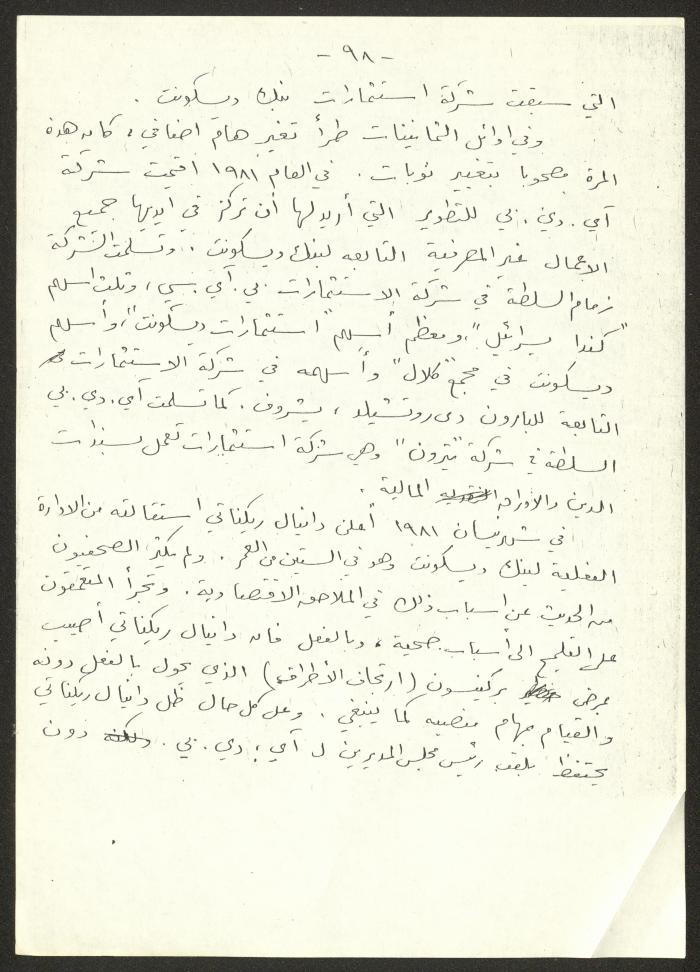 - ٩٨ -
التي سبقت شركة استثمارات بنك ديسكونت .
وفي اوائل الثمانينات طرأ تغير هام اضافي ، كان هذه
المرة مصحوبا بتغيير نوبات . في العام ١٩٨١ اقيمت شركة
آي . دي . بي للتطوير التي أريد لها أن تركز في ايديها جميع
الاعمال غير المصرفية التابعه لبنك ديسكونت . وتسلمت الشركة
زمام السلطة في شركة الاستثمارات بي . آي . سي ، وتلت اسهم
"كندا يسرائيل" ، ومعظم أسهم "استثمارات ديسكونت" ، وأسهم
ديسكونت في مجمع "كلال" وأسهمه في شركة الاستثمارات
التابعة للبارون دى روتشيلد ، يشروف . كما تسلمت آي . دي . بي
السلطة في شركة "نترون" وهي شركة استثمارات تعمل بسندات
الدين والاوراق المالية .
في شهر نيسان ١٩٨١ أعلن دانيال ريكناتي استقالته من الادارة
الفعلية لبنك ديسكونت وهو في الستين من العمر . ولم يكثر الصحفيون
من الحديث عن اسباب ذلك في الملاحق الاقتصادية . وتجرأ المتعمقون
على التلميح الى أسباب صحية ، وبالفعل فان دانيال ريكناتي أصيب
بمرض بركنسون (ارتجاف الأطراف) الذي يحول بالفعل دونه
والقيام بمهام منصبه كما ينبغي . وعلى كل حال ظل دانيال ريكناتي
يحتفظ بلقب رئيس مجلس المديرين ل آي . دي . بي . ولكنه دون